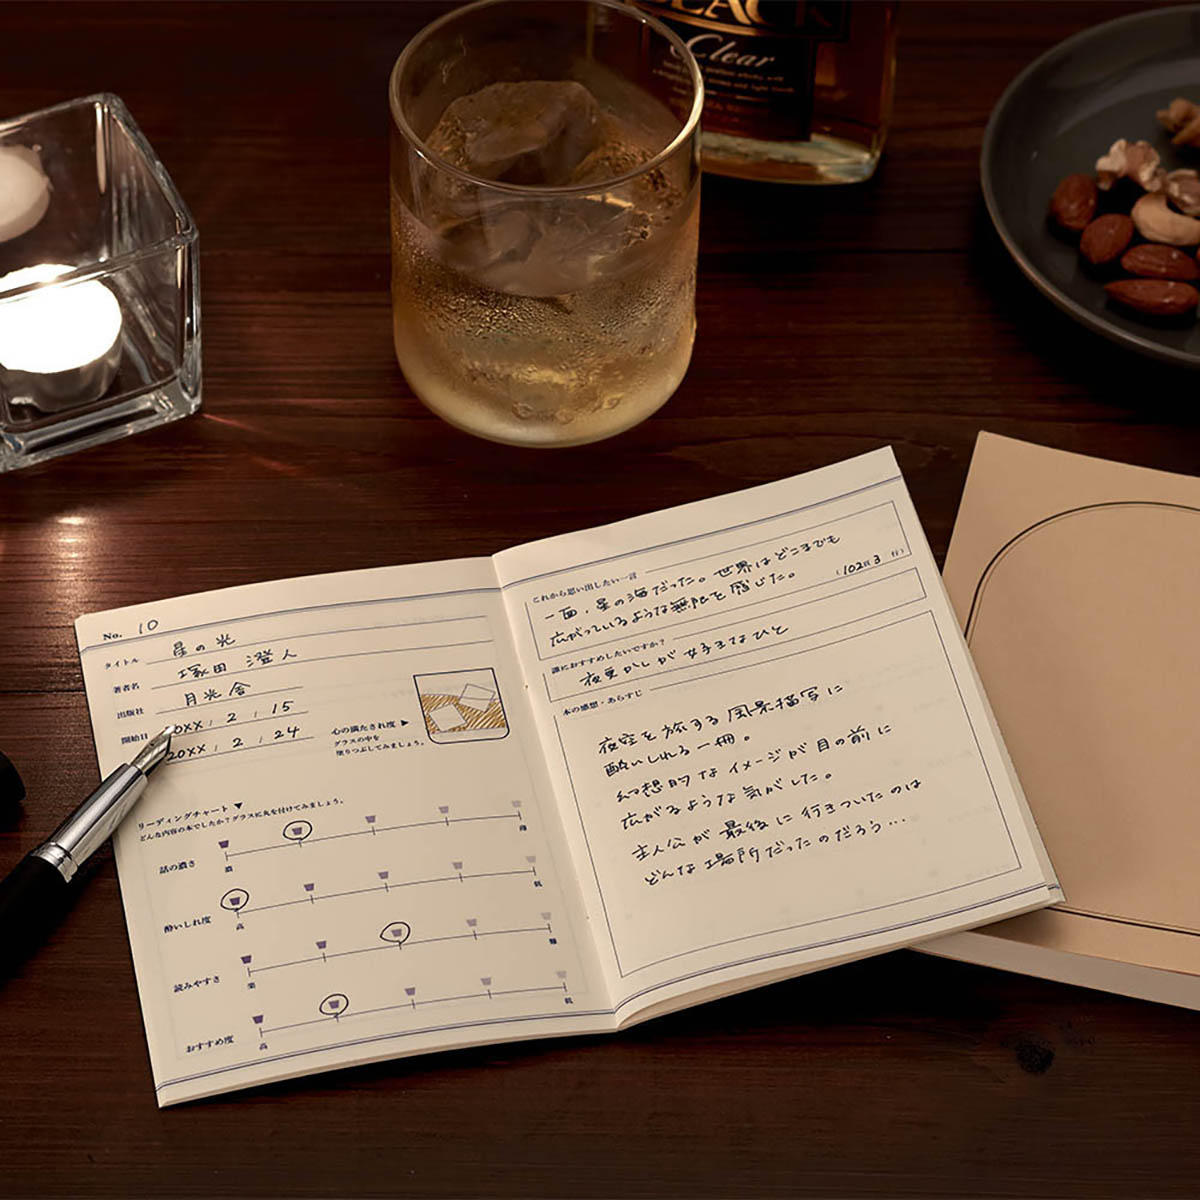 BLACK
Clear
No. 10
タイトル 星の光
著者名 塚田 澄人
出版社 月光舎
開始日 20XX / 2 / 15
20XX / 2 / 24
心の満たされ度 ▶
グラスの中を
塗りつぶしてみましょう。
リーディングチャート ▼
どんな内容の本でしたか？グラスに丸を付けてみましょう。
話の濃さ
濃 薄
酔いしれ度
高 低
読みやすさ
楽 難
おすすめ度
高 低
これから思い出したい一言
一面、星の海だった。世界はどこまでも
広がっているような無限を感じた。
(102頁 3 行)
誰におすすめしたいですか？
夜更かしが好きなひと
本の感想・あらすじ
夜空を旅する風景描写に
酔いしれる一冊。
幻想的なイメージが目の前に
広がるような気がした。
主人公が最後に行きついたのは
どんな場所だったのだろう…